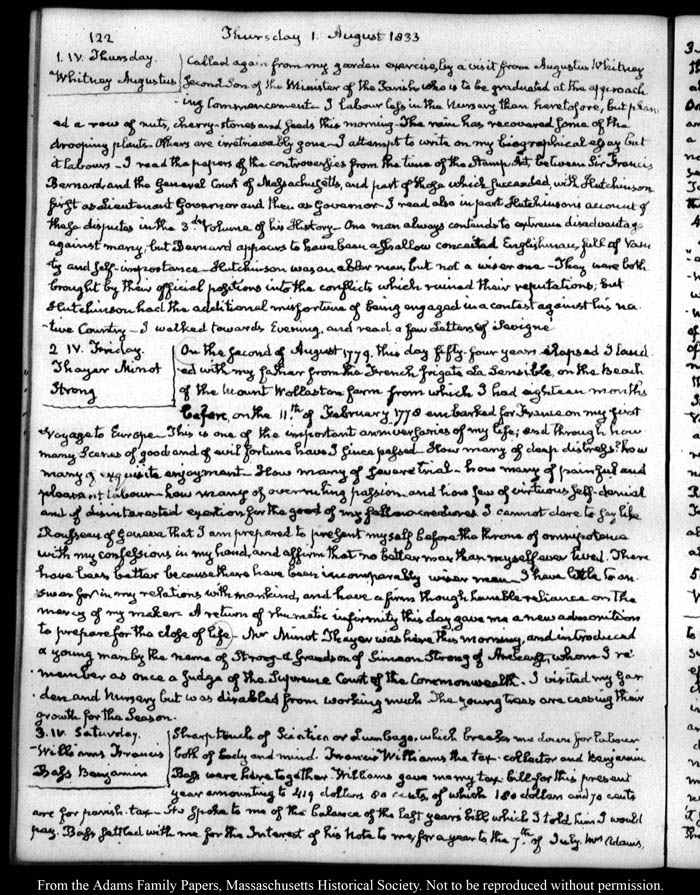 122 Thursday 1. August 1833
1. IV. Thursday. Called again from my garden exercise, by a visit from Augustus Whitney
Whitney Augustus Second Son of the Minister of the Parish who is to be graduated at the approach
-ing Commencement. I labour less in the Nursery than heretofore, but plan
ed a row of nuts, cherry-stones and seeds this morning. The rain has recovered some of the
drooping plants. Others are irretrievably gone. I attempt to write on my biographical essay but
it labours. I read the papers of the controversies from the time of the Stamp Act between Sir Francis
Bernard and the General Court of Massachusetts, and part of those which succeeded, with Hutchinson
first as Lieutenant Governor and then as Governor. I read also in part Hutchinson's account of
these disputes in the 3d. Volume of his History. One man always contends to extreme disadvantage
against many; but Bernard appears to have been a shallow conceited Englishman, full of Vani
ty and self-importance. Hutchinson was an abler man, but not a wiser one. They were both
brought by their official positions into the conflicts which ruined their reputations; but
Hutchinson had the additional misfortune of being engaged in a contest against his na
-tive Country. I walked towards Evening, and read a few Letters of Sevigne
2 IV. Friday. On the second of August 1779. This day fifty-four years elapsed I land
Thayer Minot ed with my father from the French frigate La Sensible, on the Beach
Strong of the Mount Wollaston farm from which I had eighteen months
before, on the 11th. of February 1778 embarked for France on my first
voyage to Europe. This is one of the important anniversaries of my life; and through how
many scenes of good and of evil fortune have I since passed. How many of deep distress? how
many of exquisite enjoyment. How many of severe trial. how many of painful and
pleasant labour. how many of overruling passion and how few of virtuous self-denial
and of disinterested exertion for the good of my fellow creatures I cannot dare to say like
Rousseau of Geneva that I am prepared to present myself before the throne of omnipotence
with my confessions in my hand, and affirm that no better man than myself ever lived. There
have been better because there have been incomparably wiser men. I have little to an
swer for in my relations with mankind, and have a firm though humble reliance on the
mercy of my maker. A return of rheumatic infirmity this day gave me a new admonition
to prepare for the close of life. Mr Minot Thayer was here this morning, and introduced
a young man by the name of Strong a Grandson of Simeon Strong of Amherst, whom I re
member as once a Judge of the Supreme Court of the Commonwealth. I visited my Gar
den and Nursery but was disabled from working much. The young trees are ceasing their
growth for the Season.
3. IV. Saturday. Sharp touch of Sciatica or Lumbago, which breaks me down for labour
Williams Francis both of body and mind. Francis Williams the tax-collector and Benjamin
Bass Benjamin Bass were here together. Williams gave me my tax bill for this present
year amounting to 419 dollars 80 cents, of which 180 dollars and 70 cents
are for parish tax. He spoke to me of the balance of the last years bill which I told him I would
pay. Bass settled with me for the Interest of his Note to me, for a year to the 7th. of July. Mrs Adams,
From the Adams Family Papers, Massachusetts Historical Society. Not to be reproduced without permission.